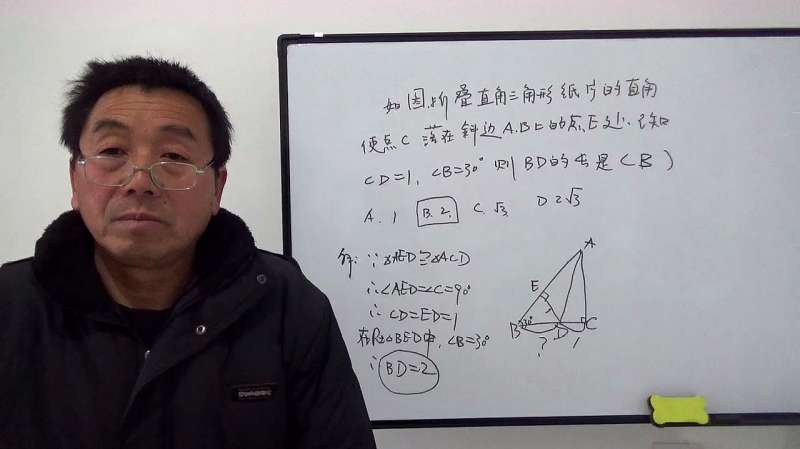 如图,折叠直角三角形纸片的直角
使点C落在斜边AB上的点E处.已知
CD=1,∠B=30°则BD的长是(B)
A.1 B.2. C.√3. D 2√3
解:∵△AED≌△ACD
∴∠AED=∠C=90°
∴CD=ED=1
在Rt△BED中,∠B=30°
∴BD=2
A
E
B 30° D C
? 1